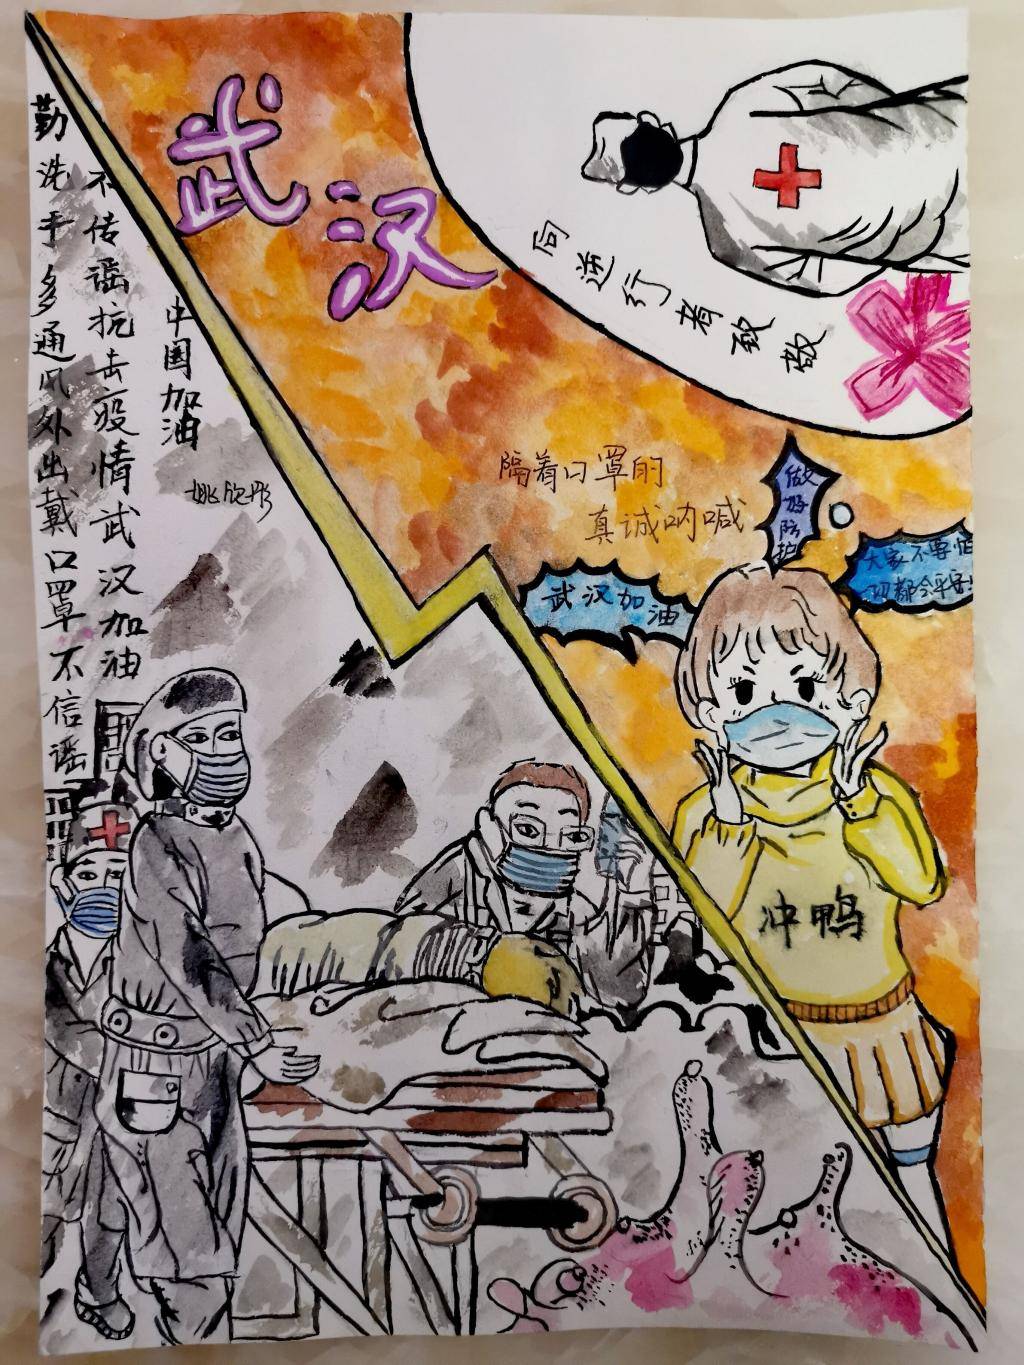 武汉
向逆行者致敬
勤洗手多通风外出戴口罩不信谣
不传谣抗击疫情武汉加油
中国加油
隔着口罩的
真诚呐喊
做好防护
武汉加油
大家不要怕
一切都会平安!
冲鸭